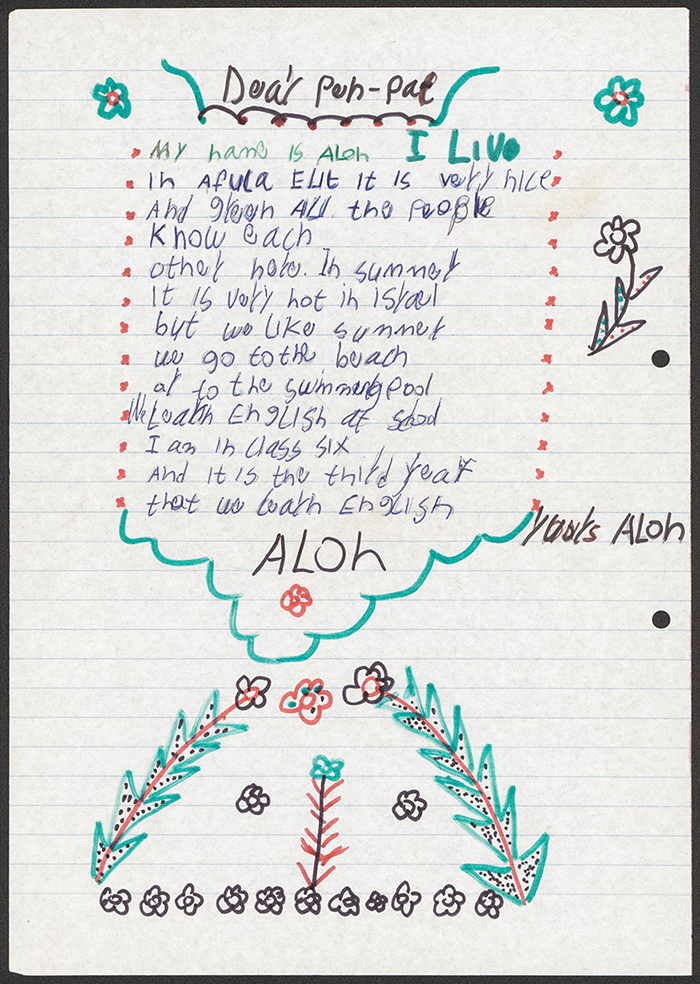 Dear Pen-Pal
My name is ALon I Live
in AfuLa ELit it is very nice
And green ALL the people
Know each
other here. In summer
it is very hot in israel
but we Like summer
we go to the beach
or to the swimmingpool
We Learn EngLish at school
I am in cLass six
And it is the third year
that we Learn EngLish
yours ALon
ALon